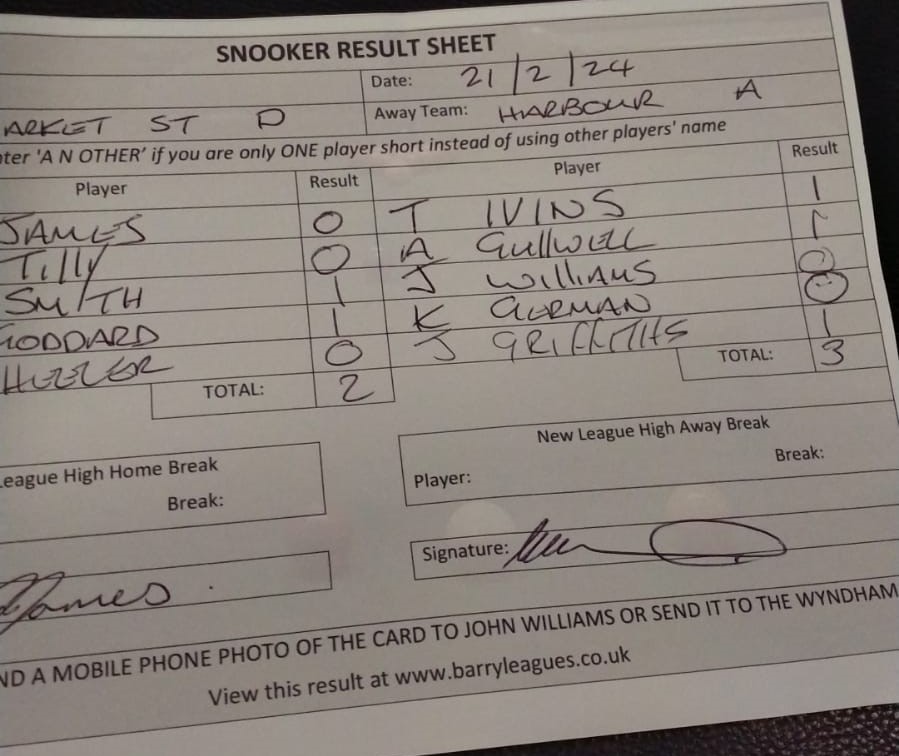 SNOOKER RESULT SHEET
Date: 21/2/24
ARKET ST D Away Team: HARBOUR A
nter 'A N OTHER' if you are only ONE player short instead of using other players' name
Player Result Player Result
JAMES 0 T IVINS 1
Tilly 0 A GullWELL 1
SMITH 1 J WilliAMS 0
GODDARD 1 K GORMAN 0
0 J GRIFFITHS 1
TOTAL: 2 TOTAL: 3
League High Home Break New League High Away Break
Break: Player: Break:
James Signature:
ND A MOBILE PHONE PHOTO OF THE CARD TO JOHN WILLIAMS OR SEND IT TO THE WYNDHAM
View this result at www.barryleagues.co.uk